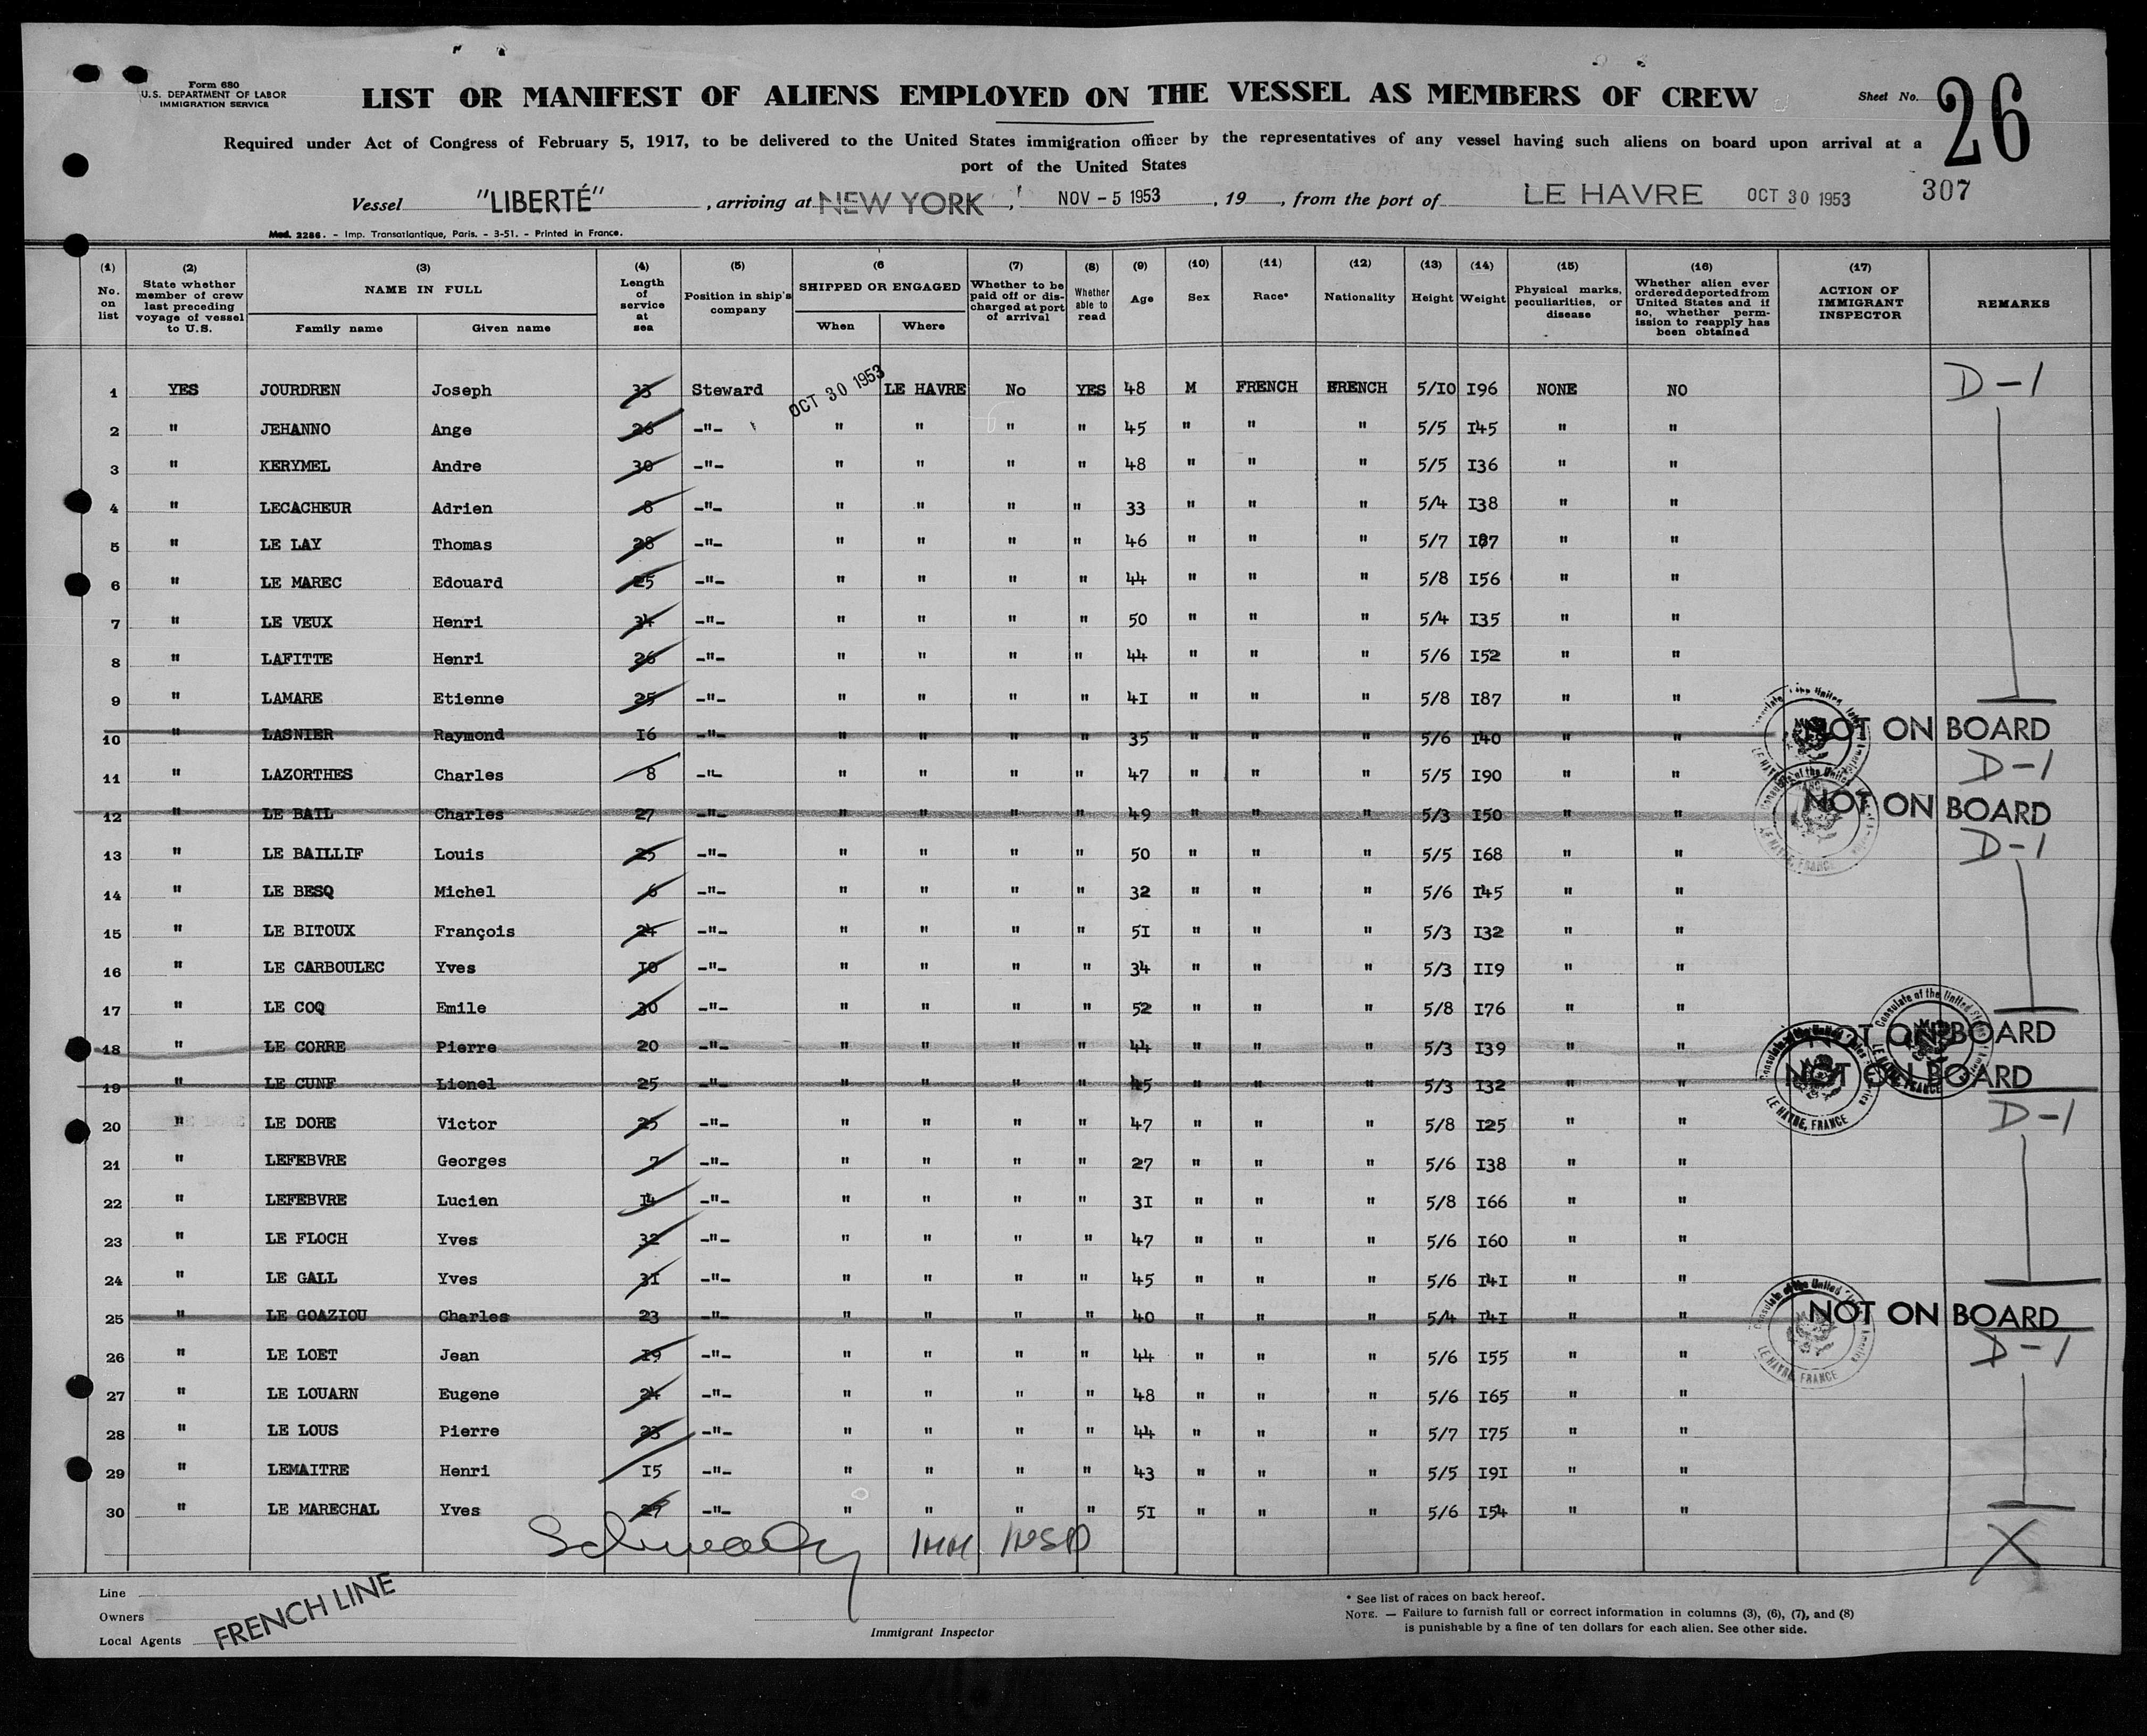 Form 680
U.S. DEPARTMENT OF LABOR
IMMIGRATION SERVICE
LIST OR MANIFEST OF ALIENS EMPLOYED ON THE VESSEL AS MEMBERS OF CREW
Sheet No. 26
Required under Act of Congress of February 5, 1917, to be delivered to the United States immigration officer by the representatives of any vessel having such aliens on board upon arrival at a
port of the United States
307
Vessel "LIBERTÉ" , arriving at NEW YORK , NOV - 5 1953 , 19 , from the port of LE HAVRE OCT 30 1953
Mod. 2286. - Imp. Transatlantique, Paris. - 3-51. - Printed in France.
(1) No. on list (2) State whether member of crew last preceding voyage of vessel to U.S. (3) NAME IN FULL Family name Given name (4) Length of service at sea (5) Position in ship's company (6 SHIPPED OR ENGAGED When Where (7) Whether to be paid off or discharged at port of arrival (8) Whether able to read (9) Age (10) Sex (11) Race* (12) Nationality (13) Height (14) Weight (15) Physical marks, peculiarities, or disease (16) Whether alien ever ordered deported from United States and if so, whether permission to reapply has been obtained (17) ACTION OF IMMIGRANT INSPECTOR REMARKS
1 YES JOURDREN Joseph 33 Steward OCT 30 1953 LE HAVRE No YES 48 M FRENCH FRENCH 5/10 196 NONE NO D-1
2 " JEHANNO Ange 26 -"- " " " " 45 " " " 5/5 145 " "
3 " KERYMEL Andre 30 -"- " " " " 48 " " " 5/5 136 " "
4 " LECACHEUR Adrien 8 -"- " " " " 33 " " " 5/4 138 " "
5 " LE LAY Thomas 28 -"- " " " " 46 " " " 5/7 187 " "
6 " LE MAREC Edouard 25 -"- " " " " 44 " " " 5/8 156 " "
7 " LE VEUX Henri 34 -"- " " " " 50 " " " 5/4 135 " "
8 " LAFITTE Henri 26 -"- " " " " 44 " " " 5/6 152 " "
9 " LAMARE Etienne 25 -"- " " " " 41 " " " 5/8 187 " "
10 " LASNIER Raymond 16 -"- " " " " 35 " " " 5/6 140 " " NOT ON BOARD
11 " LAZORTHES Charles 8 -"- " " " " 47 " " " 5/5 190 " " D-1
12 " LE BAIL Charles 27 -"- " " " " 49 " " " 5/3 150 " " NOT ON BOARD
13 " LE BAILLIF Louis 25 -"- " " " " 50 " " " 5/5 168 " " D-1
14 " LE BESQ Michel 6 -"- " " " " 32 " " " 5/6 145 " "
15 " LE BITOUX François 24 -"- " " " " 51 " " " 5/3 132 " "
16 " LE CARBOULEC Yves 10 -"- " " " " 34 " " " 5/3 119 " "
17 " LE COQ Emile 30 -"- " " " " 52 " " " 5/8 176 " "
18 " LE CORRE Pierre 20 -"- " " " " 44 " " " 5/3 139 " " NOT ON BOARD
19 " LE CUNF Lionel 25 -"- " " " " 45 " " " 5/3 132 " " NOT ON BOARD
20 " LE DORE Victor 25 -"- " " " " 47 " " " 5/8 125 " " D-1
21 " LEFEBVRE Georges 7 -"- " " " " 27 " " " 5/6 138 " "
22 " LEFEBVRE Lucien 14 -"- " " " " 31 " " " 5/8 166 " "
23 " LE FLOCH Yves 32 -"- " " " " 47 " " " 5/6 160 " "
24 " LE GALL Yves 31 -"- " " " " 45 " " " 5/6 141 " "
25 " LE GOAZIOU Charles 23 -"- " " " " 40 " " " 5/4 141 " " NOT ON BOARD
26 " LE LOET Jean 19 -"- " " " " 44 " " " 5/6 155 " " D-1
27 " LE LOUARN Eugene 24 -"- " " " " 48 " " " 5/6 165 " "
28 " LE LOUS Pierre 23 -"- " " " " 44 " " " 5/7 175 " "
29 " LEMAITRE Henri 15 -"- " " " " 43 " " " 5/5 191 " "
30 " LE MARECHAL Yves 27 -"- " " " " 51 " " " 5/6 154 " "
Consulate of the United States of America
LE HAVRE, FRANCE
IMM INSP X
Line
Owners
Local Agents FRENCH LINE
Immigrant Inspector
* See list of races on back hereof.
NOTE. — Failure to furnish full or correct information in columns (3), (6), (7), and (8)
is punishable by a fine of ten dollars for each alien. See other side.